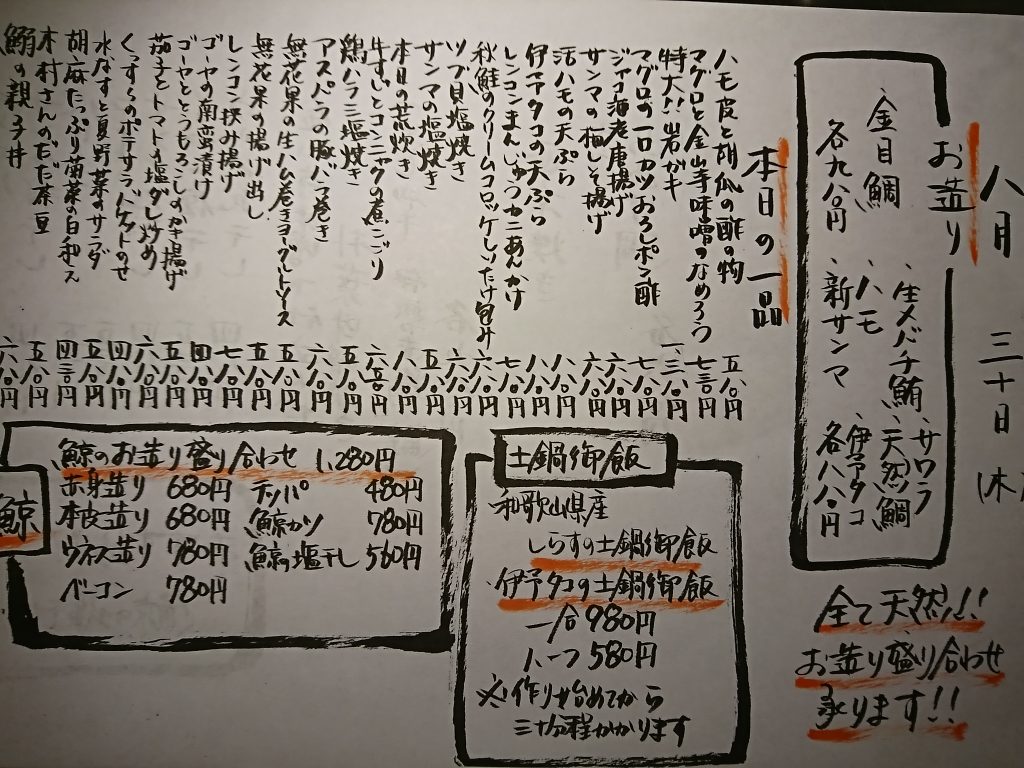 八月 三十日
お造り
、生メバチ鮪、サワラ
、ハモ 、天然鯛
、新サンマ 、伊予タコ
各八八〇円
、金目鯛
各九八〇円
全て天然!!
お造り盛り合わせ
承ります!!
本日の一品
ハモ皮と胡瓜の酢の物 五八〇円
マグロと金山寺味噌のなめろう 七三〇円
特大!!岩がキ 一、三八〇円
マグロの一口カツおろしポン酢 六八〇円
ジャコ海老唐揚げ 六八〇円
サンマの梅しそ揚げ
活ハモの天ぷら 八八〇円
伊予タコの天ぷら 八八〇円
レンコンまんじゅうカニあんかけ 七八〇円
秋鮭のクリームコロッケしいたけ包み
ツブ貝塩焼き 六八〇円
サンマの塩焼き 五八〇円
本日の荒炊き 八八〇円
牛すじとコンニャクの煮こごり
鶏ハラミ塩焼き 五八〇円
アスパラの豚バラ巻き 六八〇円
無花果の生ハム巻きヨーグルトソース 五八〇円
無花果の揚げ出し 五八〇円
レンコン挟み揚げ 七八〇円
ゴーヤの南蛮漬け 四八〇円
ゴーヤととうもろこしのかき揚げ 五八〇円
茄子とトマト塩ダレ炒め 六八〇円
くんすもののポテサラバケットのせ 四八〇円
水なすと夏野菜のサラダ 五八〇円
胡麻たっぷり菊菜の白和え 四三〇円
木村さんのだだ茶豆 五八〇円
鰯の親子丼 六八〇円
土鍋御飯
和歌山県産
しらすの土鍋御飯
・伊予タコの土鍋御飯
一合 980円
ハーフ 580円
※作り始めてから
三十分程かかります
鯨
鯨のお造り盛り合わせ 1,280円
赤身造り 680円 テッパ 480円
本皮造り 680円 鯨カツ 780円
ウネス造り 780円 鯨の塩干し 560円
ベーコン 780円